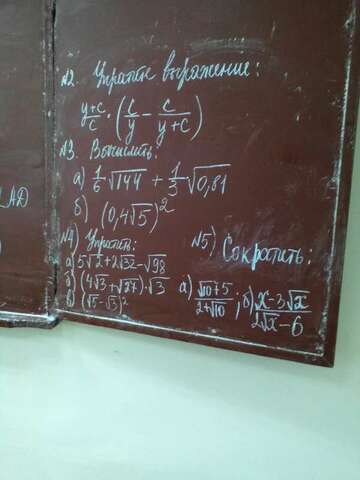 №2. Упростите выражение:
(y+c)/c · (c/y − c/(y+c))
№3. Вычислить:
а) 1/6 √144 + 1/3 √0,81
б) (0,4√5)²
№4) Упростить:
а) 5√2+2√32−√98
б) (4√3+√27)·√3
в) (√5−√3)²
№5) Сократить:
а) (√10+5)/(2+√10), б) (x−3√x)/(2√x−6)
LAD